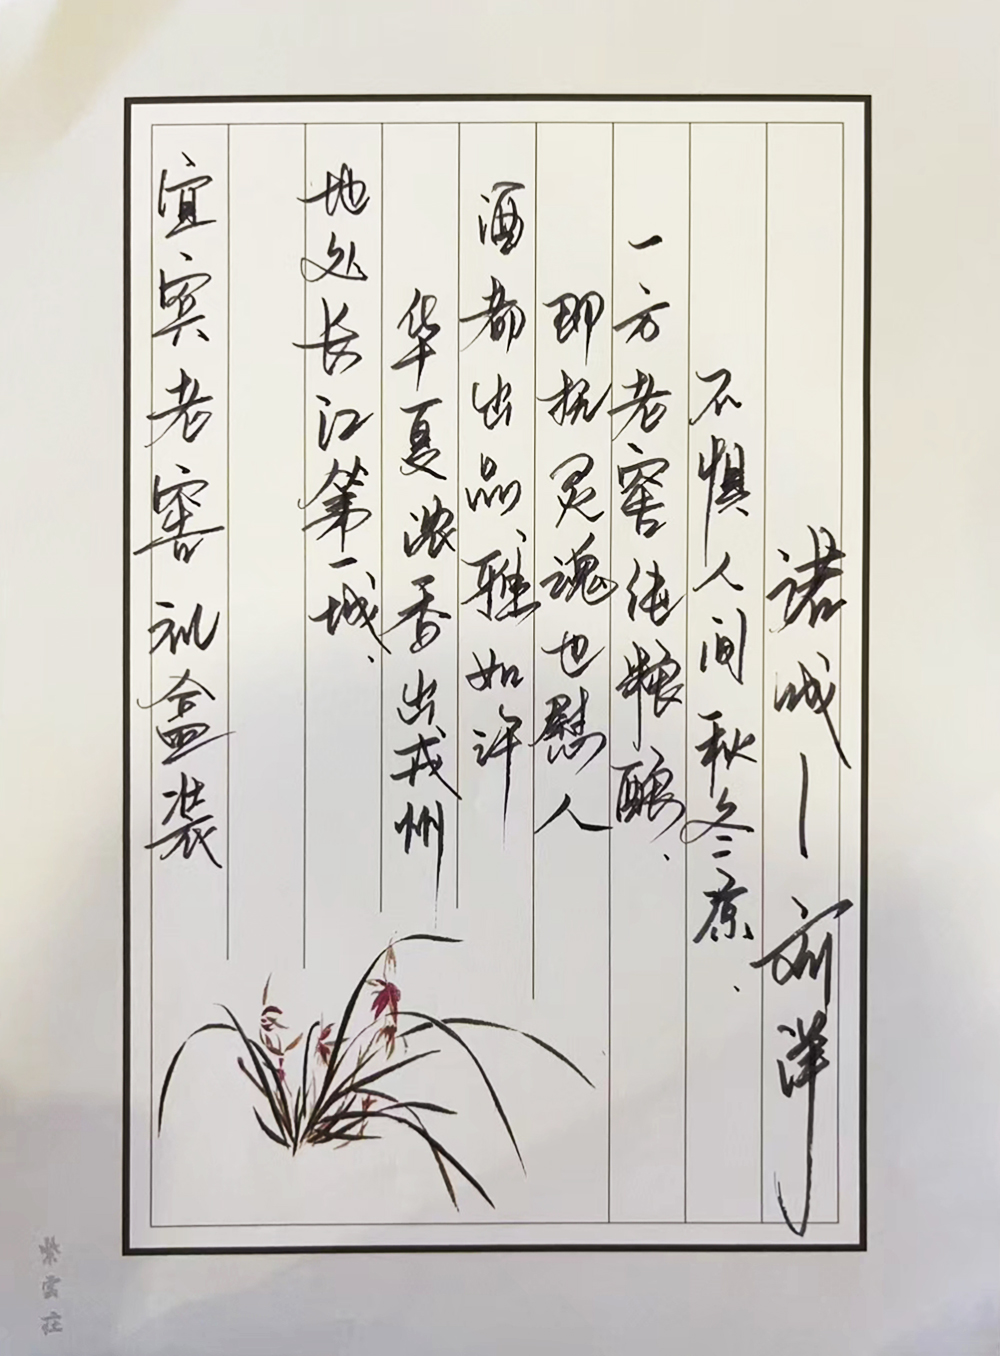 宜宾老窖礼盒装
地处长江第一城、
华夏浓香出戎州
酒都出品、雅如许
即抚灵魂也慰人
一方老窖纯粮酿、
不惧人间秋冬凉、
诺城—刘洋